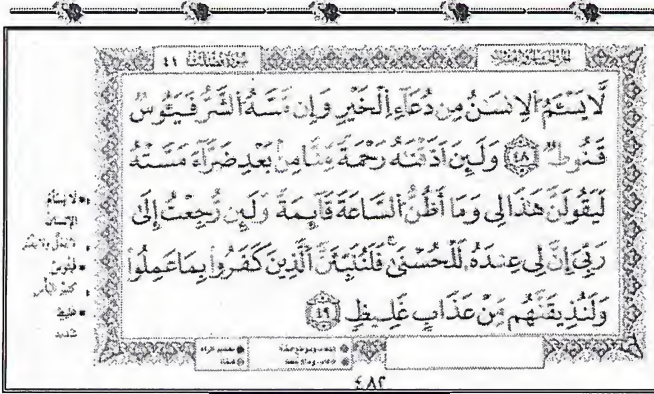 سورة فصلت ٤١
لَّا يَسْـَٔمُ اُ۬لِانسَٰنُ مِن دُعَآءِ اِ۬لْخَيْرِ وَإِن مَّسَّهُ اُ۬لشَّرُّ فَيَـُٔوسٞ
قَنُوطٞ ٤٨ وَلَئِنَ اَذَقْنَٰهُ رَحْمَةٗ مِّنَّا مِنۢ بَعْدِ ضَرَّآءَ مَسَّتْهُ
لَيَقُولَنَّ هَٰذَا لِي وَمَآ أَظُنُّ اُ۬لسَّاعَةَ قَآئِمَةٗ وَلَئِن رُّجِعْتُ إِلَىٰ
رَبِّيَ إِنَّ لِي عِندَهُۥ لَلْحُسْنَىٰ فَلَنُنَبِّئَنَّ اَ۬لذِينَ كَفَرُواْ بِمَا عَمِلُواْ
وَلَنُذِيقَنَّهُم مِّنْ عَذَابٍ غَلِيظٖ ٤٩
لا يسأم
الإنسان
غليظ
شديد
٤٨٢